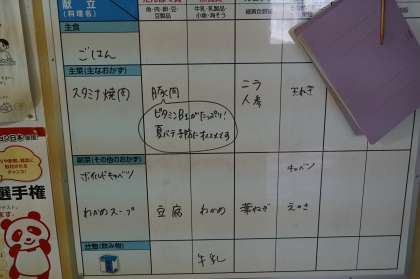 献立
(料理名)
魚・肉・卵・豆
豆製品
牛乳・乳製品
小魚・海そう
緑黄色野菜
主食
ごはん
主菜(主なおかず)
スタミナ焼肉
豚肉
ニラ
人参
玉ねぎ
ビタミンB1がたっぷり!
夏バテ予防にオススメです
副菜(その他のおかず)
ボイルドキャベツ
キャベツ
わかめスープ
豆腐
わかめ
葉ねぎ
えのき
牛乳
選手権